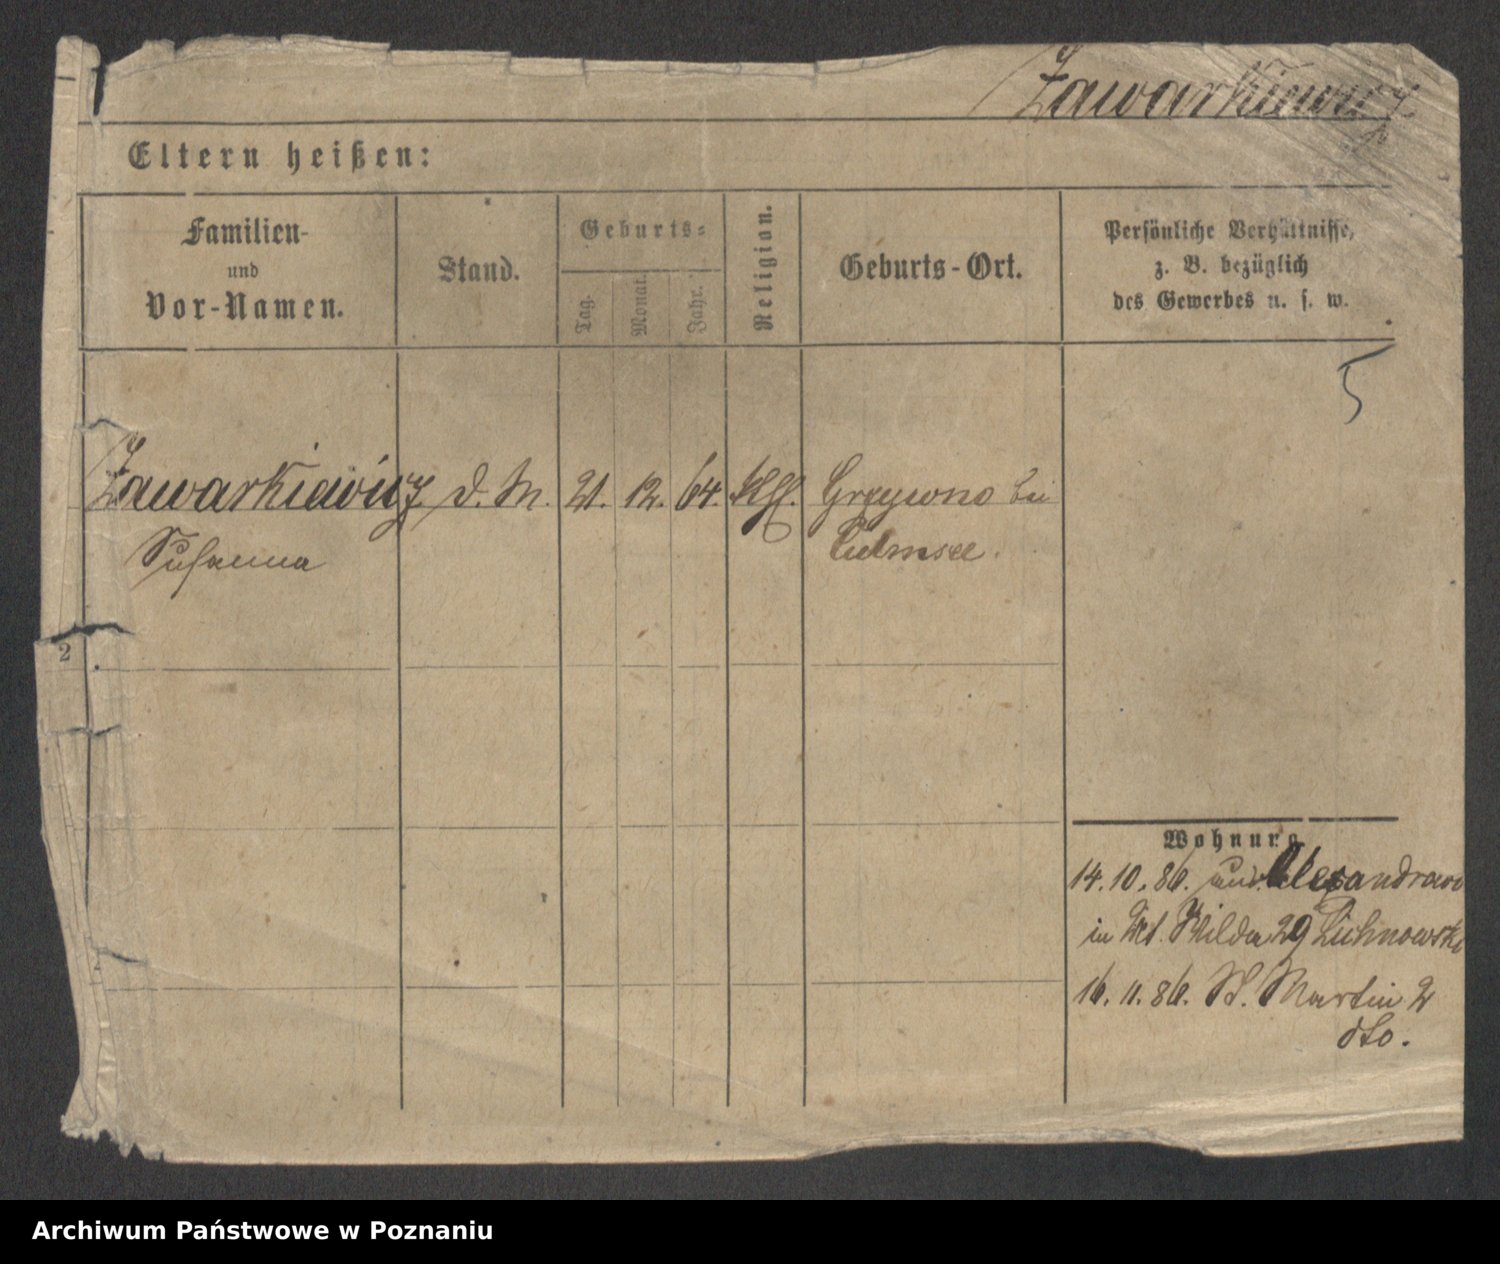 Zawarkiewicz
Eltern heißen:
Familien-
und
Vor-Namen.
Stand.
Geburts-
Tag.
Monat.
Jahr.
Religion.
Geburts-Ort.
Persönliche Verhältnisse,
z. B. bezüglich
des Gewerbes u. s. w.
5
Zawarkiewicz d. M. 21. 12. 64. Grzywno bei
Susanna Culmsee.
2
Wohnung
14. 10. 86. Alexandrowo
in Wilda 29 Lichnowski
16. 11. 86. St. Martin 2
dto.
Archiwum Państwowe w Poznaniu